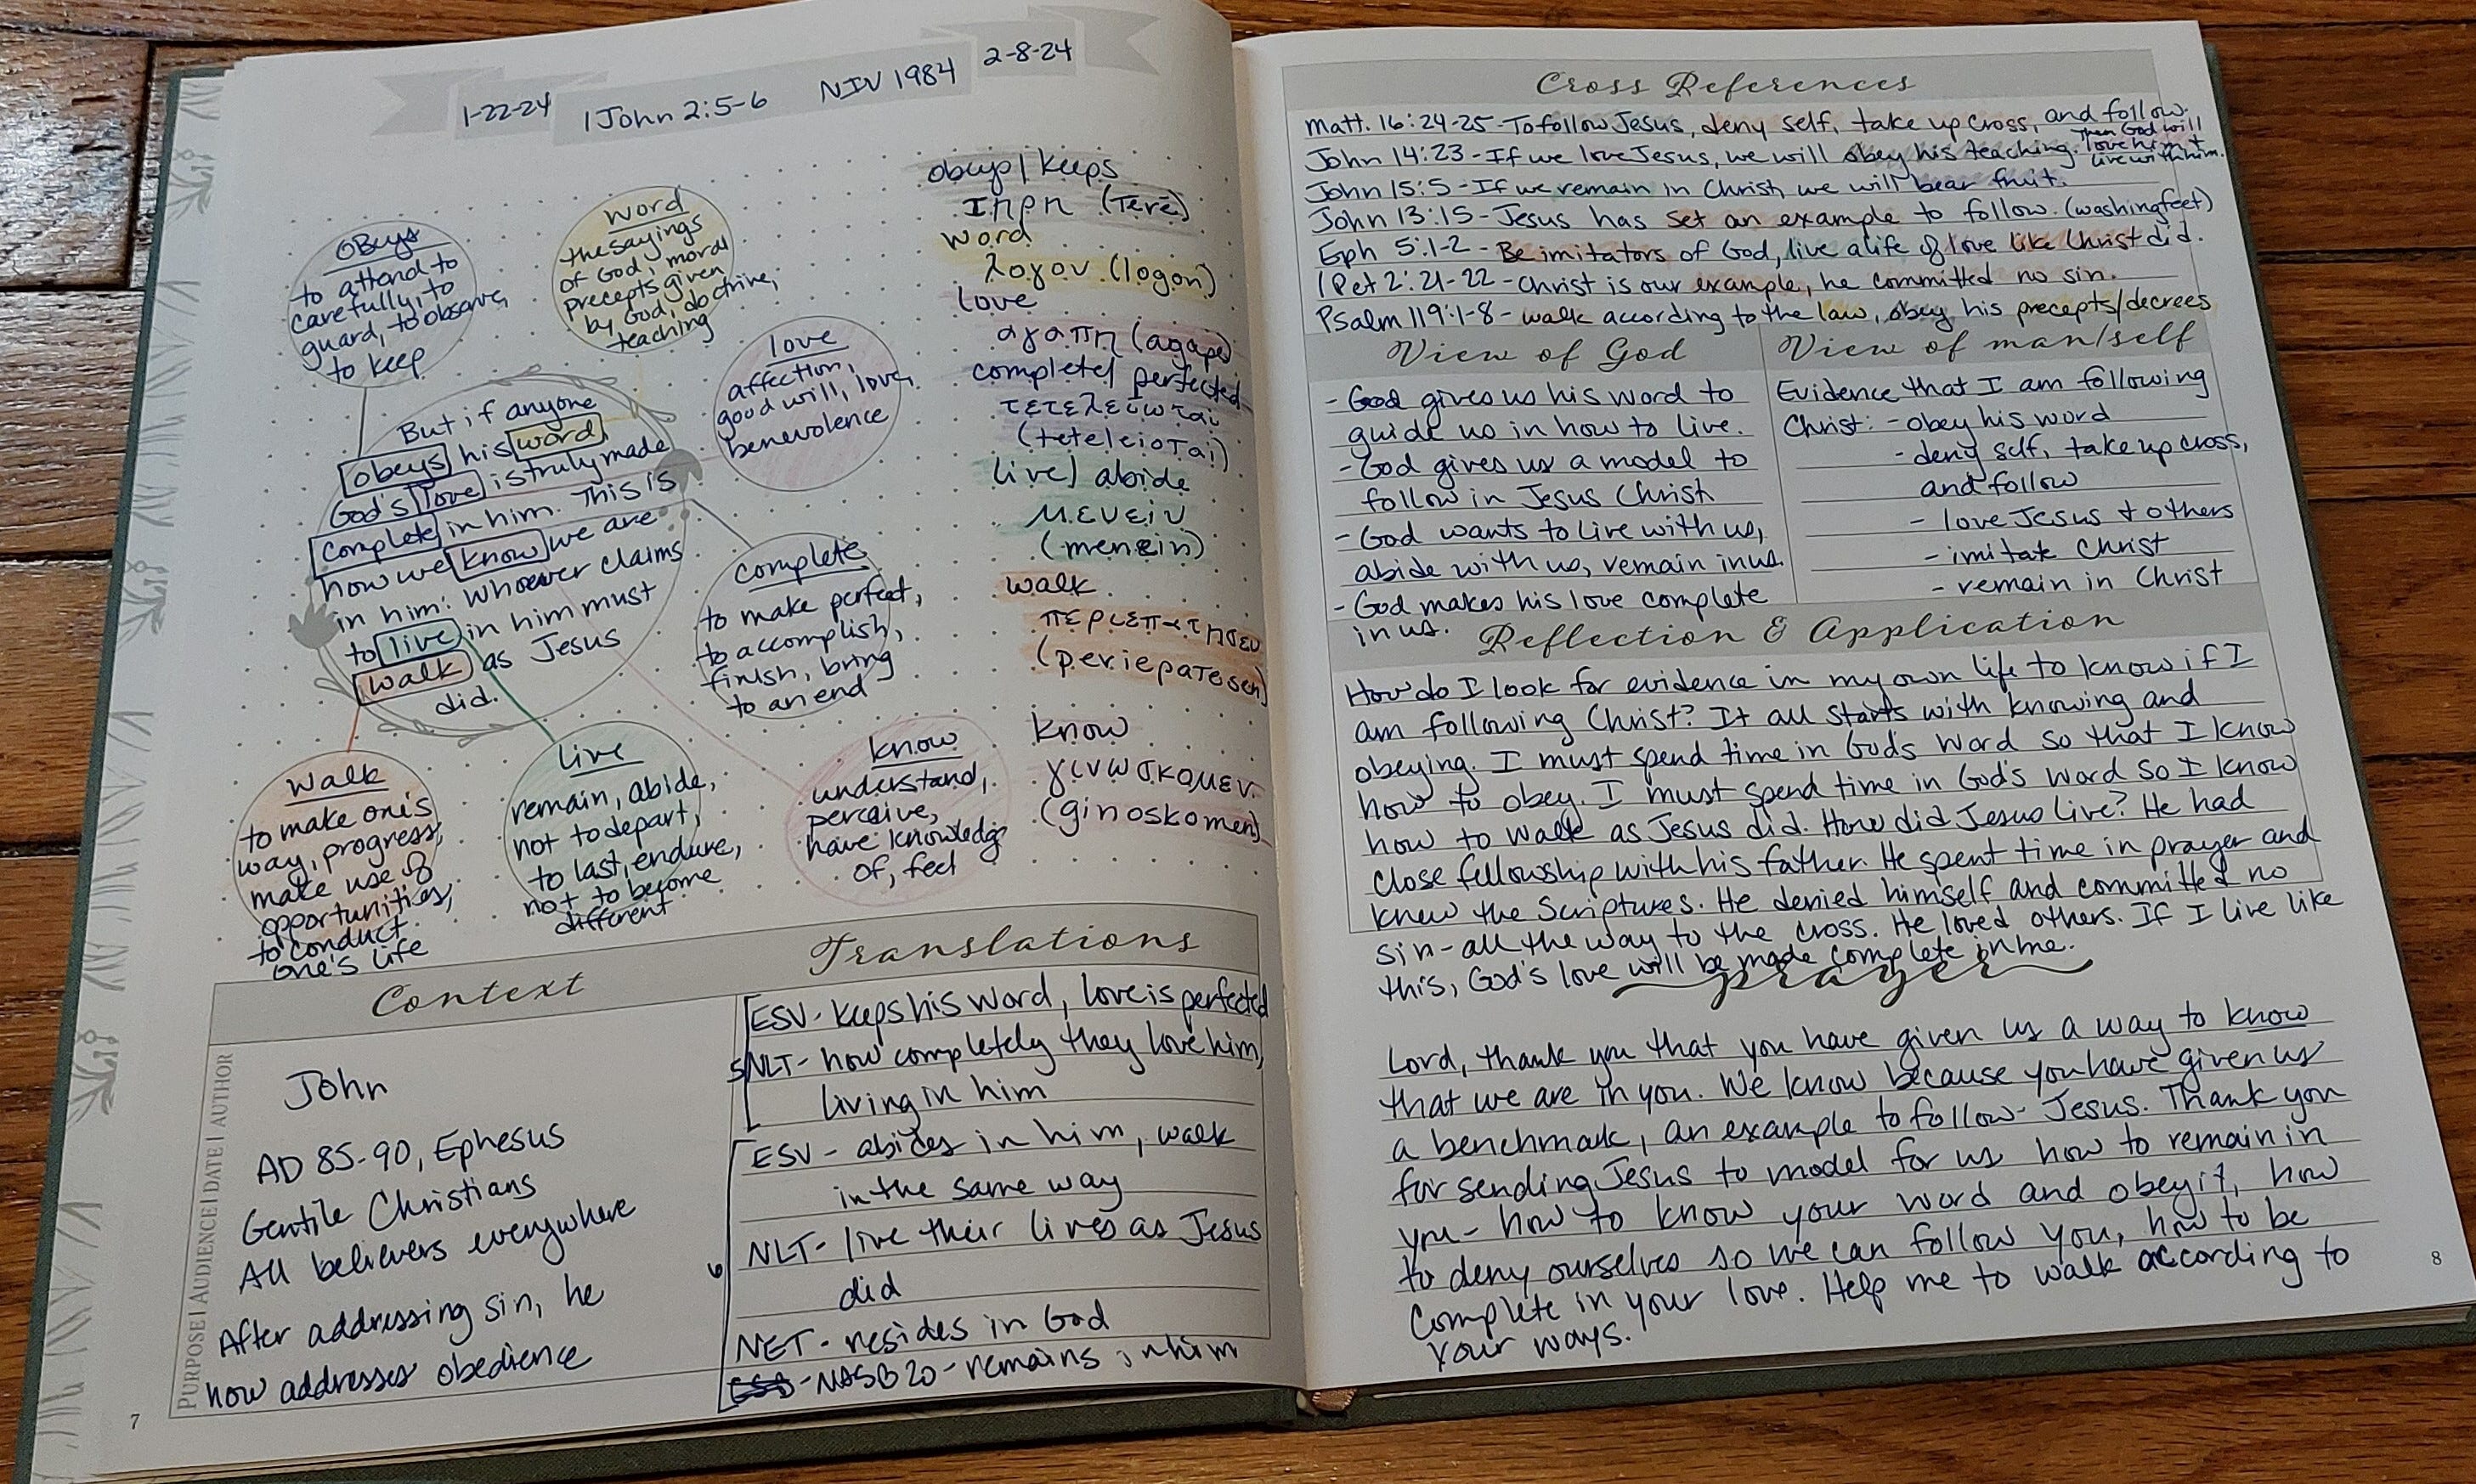 1-22-24
1 John 2:5-6
NIV 1984
2-8-24
OBeys
to attend to
carefully, to
guard, to observe,
to keep
word
the sayings
of God, moral
precepts given
by God, doctrine,
teaching
love
affection,
good will, love,
benevolence
But if anyone
obeys his word,
God's love is truly made
complete in him. This is
how we know we are
in him: Whoever claims
to live in him must
walk as Jesus
did.
complete
to make perfect,
to accomplish,
finish, bring
to an end
walk
to make one's
way, progress,
make use of
opportunities,
to conduct
one's life
live
remain, abide,
not to depart,
to last, endure,
not to become
different
know
understand,
perceive,
have knowledge
of, feel
obeys/keeps
Ιηρη (Tērē)
word
λογον (logon)
love
αγαπη (agape)
complete/perfected
τετελείωται
(teteleioTai)
live/abide
μενειν
(menein)
walk
περιεπατησεν
(periepaTesen)
know
γινωσκομεν
(ginoskomen)
Context
PURPOSE | AUDIENCE | DATE | AUTHOR
John
AD 85-90, Ephesus
Gentile Christians
All believers everywhere
After addressing sin, he
now addresses obedience
Translations
5
ESV- keeps his word, love is perfected
NLT- how completely they love him,
living in him
6
ESV- abides in him, walk
in the same way
NLT- live their lives as Jesus
did
NET- resides in God
-NASB20- remains in him
7
Cross References
Matt. 16:24-25-To follow Jesus, deny self, take up cross, and follow.
John 14:23-If we love Jesus, we will obey his teaching. Then God will love him + live with him.
John 15:5-If we remain in Christ, we will bear fruit.
John 13:15-Jesus has set an example to follow. (washing feet)
Eph 5:1-2 - Be imitators of God, live a life of love like Christ did.
1 Pet 2:21-22-Christ is our example, he committed no sin.
Psalm 119:1-8- walk according to the law, obey his precepts/decrees
View of God
- God gives us his word to
guide us in how to live.
- God gives us a model to
follow in Jesus Christ
- God wants to live with us,
abide with us, remain in us.
- God makes his love complete
in us.
View of man/self
Evidence that I am following
Christ: - obey his word
- deny self, take up cross,
and follow
- love Jesus + others
- imitate Christ
- remain in Christ
Reflection & Application
How do I look for evidence in my own life to know if I
am following Christ? It all starts with knowing and
obeying. I must spend time in God's word so that I know
how to obey. I must spend time in God's word so I know
how to walk as Jesus did. How did Jesus live? He had
close fellowship with his father. He spent time in prayer and
knew the Scriptures. He denied himself and committed no
sin-all the way to the cross. He loved others. If I live like
this, God's love will be made complete in me.
prayer
Lord, thank you that you have given us a way to know
that we are in you. We know because you have given us
a benchmark, an example to follow- Jesus. Thank you
for sending Jesus to model for us how to remain in
you- how to know your word and obey it, how
to deny ourselves so we can follow you, how to be
complete in your love. Help me to walk according to
your ways.
8